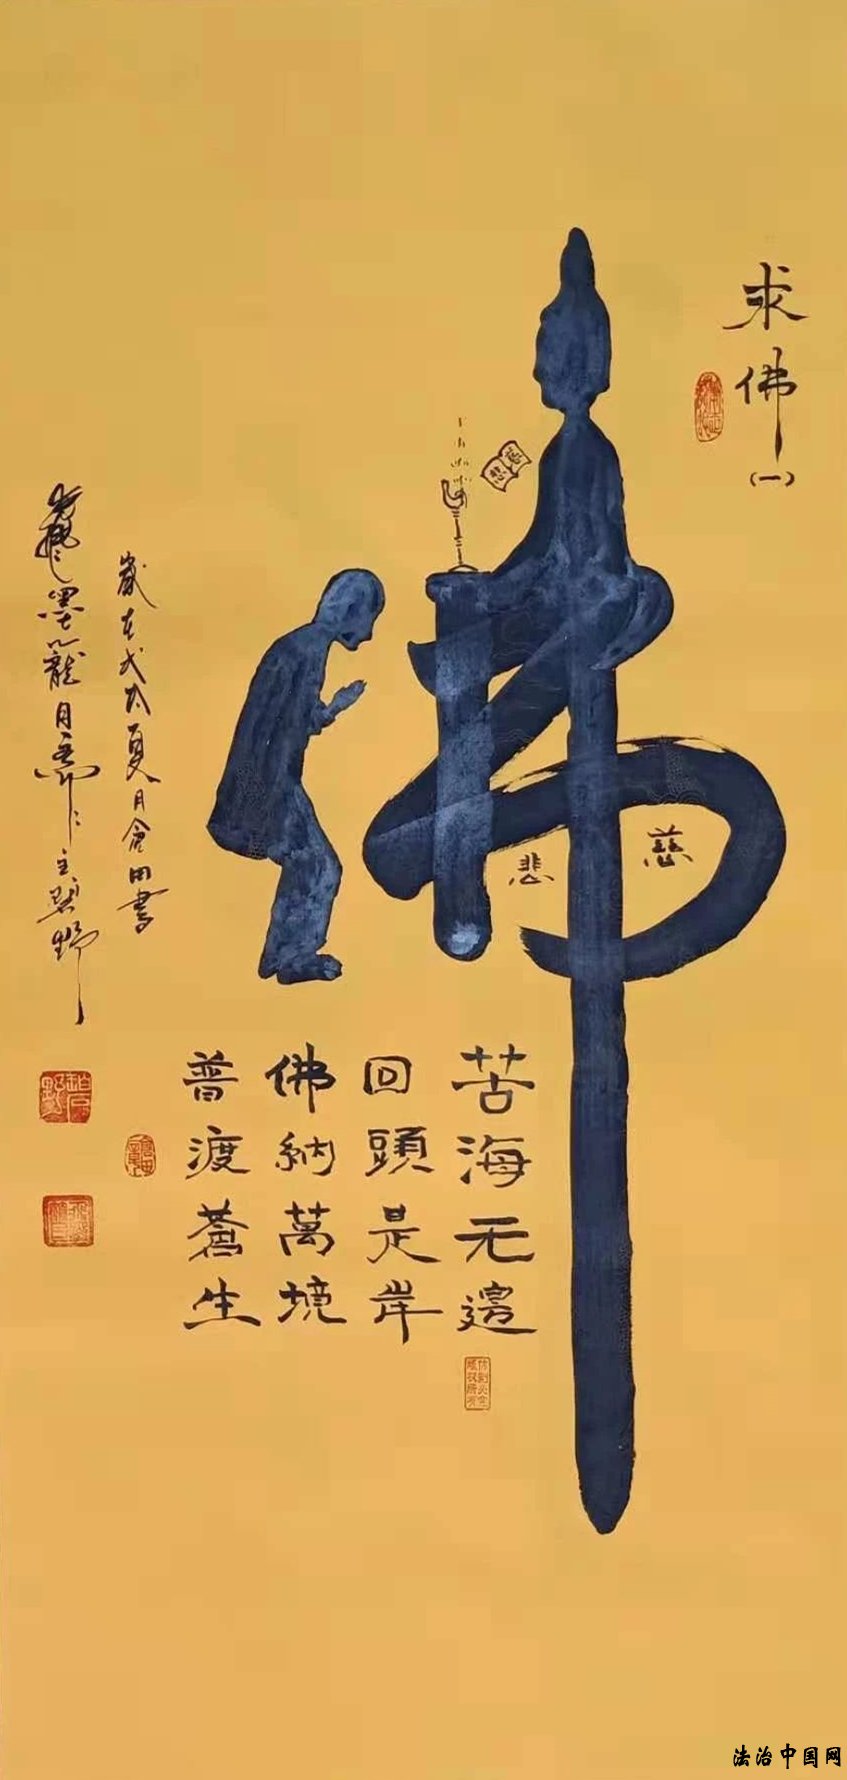 求佛
(一)
佛
慈悲
慈
悲
苦海无邊
回頭是岸
佛納萬境
普渡蒼生
歲在戊戌夏月倉田書
墨龍月齋主碧野
法治中国网